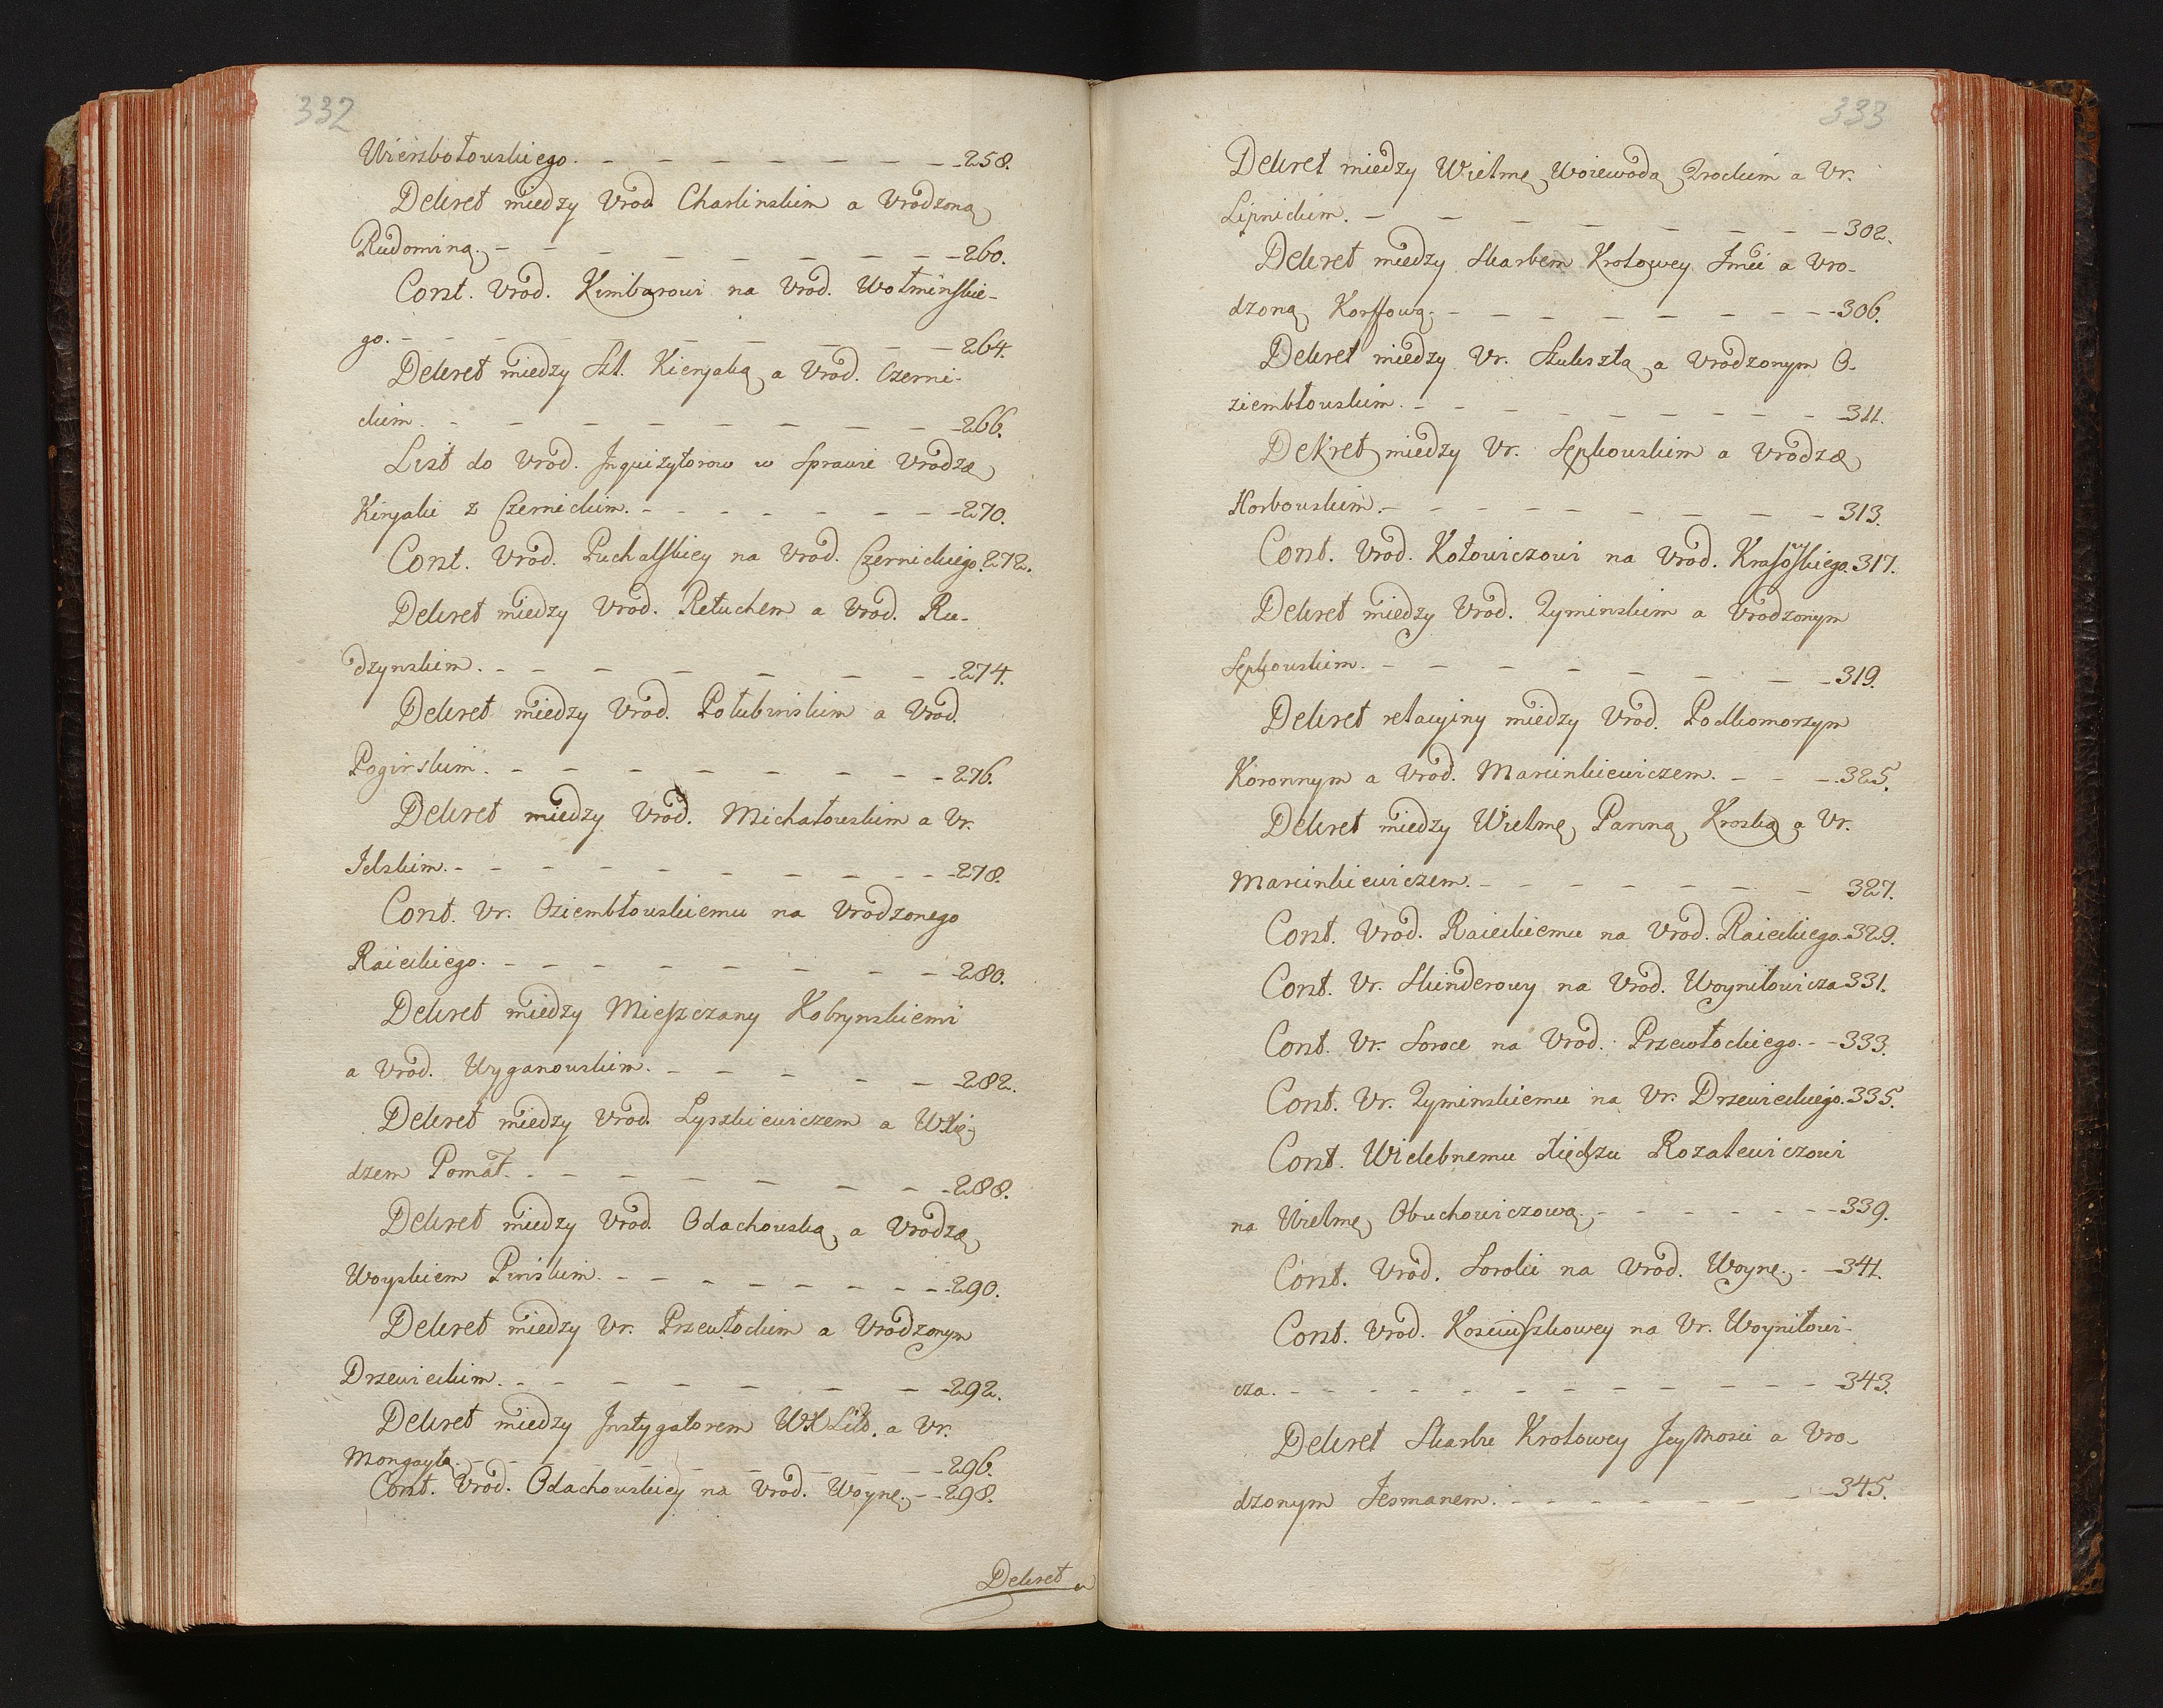 332
Wierzbołowskiego. - - - - - - - 258.
Dekret miedzy Vrod Charlinskim a Vrodzoną
Rudominą. - - - - - - - - 260.
Const. Vrod. Kimbarowi na Vrod. Wołminskie-
go. - - - - - - - - 264.
Dekret miedzy Szl. Kieryaką a Vrod. Czerni-
ckim. - - - - - - - - 266.
List do Vrod. Inquizytorow w Sprawie Vrodzę
Kiryaki z Czernickim. - - - - - - - 270.
Const. Vrod. Puchalskiey na Vrod. Czernickiego. 272.
Dekret miedzy Vrod. Retuchem a Vrod. Ru-
dzynskim. - - - - - - - 274.
Dekret miedzy Vrod. Połubinskim a Vrod.
Pogirskim. - - - - - - - - 276.
Dekret miedzy Vrod. Michałowskim a Vr.
Jelskim. - - - - - - - - 278.
Const. Vr. Oziembłowskiemu na Vrodzonego
Raieckiego. - - - - - - - - 280.
Dekret miedzy Mieszczany Kobrynskiemi
a Vrod. Wyganowskim. - - - - - - 282.
Dekret miedzy Vrod. Lyszkiewiczem a WXię-
dzem Pomat. - - - - - - - 288.
Dekret miedzy Vrod. Odachowską a Vrodzę
Woyskiem Pinskim. - - - - - - - 290.
Dekret miedzy Vr. Przewłockim a Vrodzonym
Drzewieckim. - - - - - - - 292.
Dekret miedzy Instygatorem WXLitt. a Vr.
Mongayłą. - - - - - - - 296.
Const. Vrod. Odachowskiey na Vrod. Woynę. - - 298.
Dekret
333
Dekret miedzy Wielmę Woiewodą Trockim a Vr.
Lipnickim. - - - - - - - - 302.
Dekret miedzy Skarbem Krolowey Jmći a Vro-
dzoną Korffową. - - - - - - - - 306.
Dekret miedzy Vr. Szuksztą a Vrodzonym O-
ziembłowskim. - - - - - - - - 311.
Dekret miedzy Vr. Sepkowskim a Vrodzę
Horbowskim. - - - - - - - - 313.
Const. Vrod. Kotowiczowi na Vrod. Krasowskiego. 317.
Dekret miedzy Vrod. Zyminskim a Vrodzonym
Sepkowskim. - - - - - - - - 319.
Dekret relacyiny miedzy Vrod. Podkomorzym
Koronnym a Vrod. Marcinkiewiczem. - - - 325.
Dekret miedzy Wielmę Panną Kroską a Vr.
Marcinkiewiczem. - - - - - - 327.
Const. Vrod. Raieckiemu na Vrod. Raieckiego. 329.
Const. Vr. Skinderowy na Vrod. Woyniłowicza 331.
Const. Vr. Soroce na Vrod. Przewłockiego. - - 333.
Const. Vr. Zyminskiemu na Vr. Drzewieckiego. 335.
Const. Wielebnemu Xiędzu Rozalewiczowi
na Wielmę Obuchowiczową. - - - - - - - 339.
Const. Vrod. Soroki na Vrod. Woynę. - - 341.
Const. Vrod. Kosciuszkowey na Vr. Woyniłowi-
cza. - - - - - - - - - - 343.
Dekret Skarbu Krolowey Jeymosci a Vro-
dzonym Jesmanem. - - - - - - - - 345.